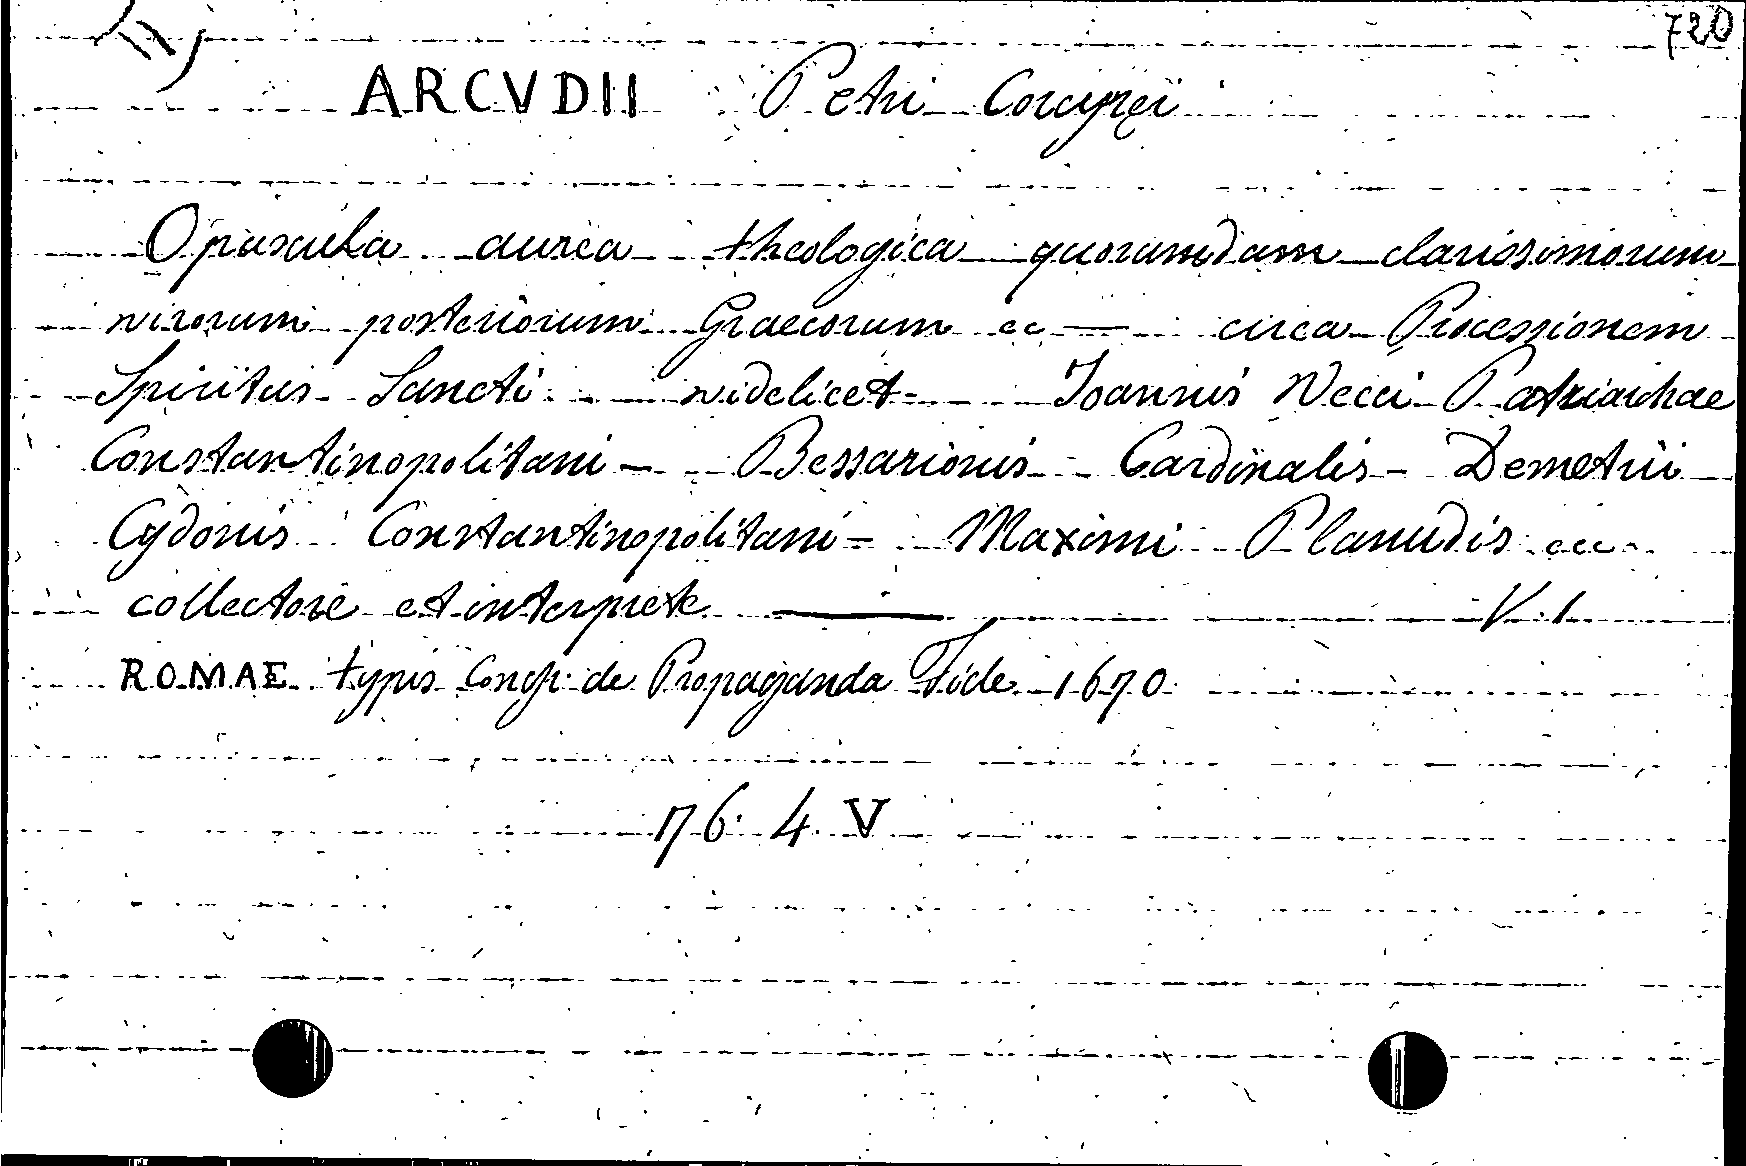 720
ARCVDII Petri Corcyræi
Opuscula aurea theologica quorumdam clarissimorum
virorum posteriorum Graecorum ec — circa Processionem
Spiritus Sancti videlicet Joannis Vecci Patriarchae
Constantinopolitani - Bessarionis Cardinalis - Demetrii
Cydonis Constantinopolitani - Maximi Planudis ecc
collectore et interprete — V. 1
ROMAE typis Congr. de Propaganda Fide 1670
176. 4. V